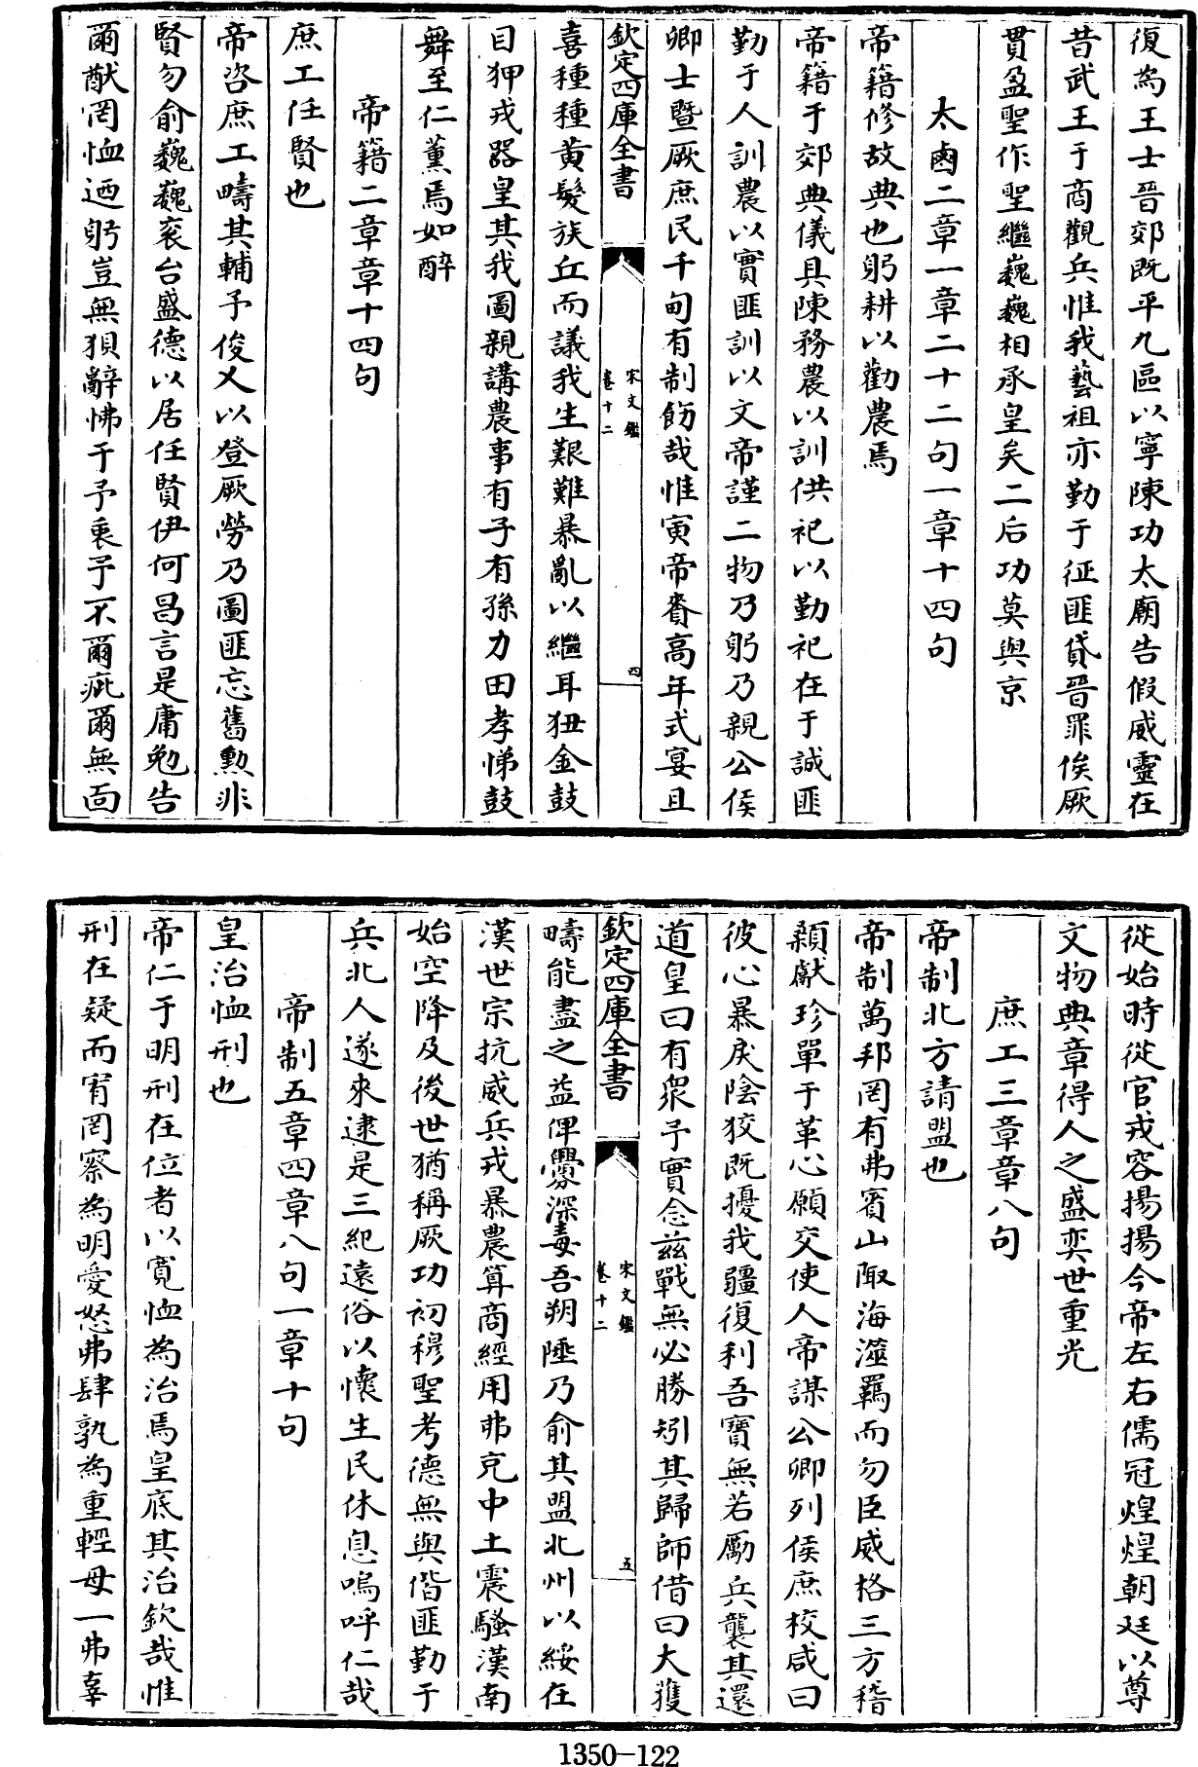 復為王士晉郊既平九區以寧陳功太廟告假威靈在
昔武王于商觀兵惟我藝祖亦勤于征匪貸晉罪俟厥
貫盈聖作聖繼巍巍相承皇矣二后功莫與京
太鹵二章一章二十二句一章十四句
帝籍修故典也躬耕以勸農焉
帝籍于郊典儀具陳務農以訓供祀以勤祀在于誠匪
勤于人訓農以實匪訓以文帝謹二物乃躬乃親公侯
卿士暨厥庶民千甸有制飭哉惟寅帝賚高年式宴且
欽定四庫全書
宋文鑑
卷十二
四
喜種種黄髮族丘而議我生艱難暴亂以繼耳狃金鼓
目狎戎器皇其我圖親講農事有子有孫力田孝悌鼓
舞至仁薰焉如醉
帝籍二章章十四句
庶工任賢也
帝咨庶工疇其輔予俊乂以登厥勞乃圖匪忘舊勲非
賢勿俞巍巍衮台盛德以居任賢伊何昌言是庸勉告
爾猷罔恤迺躬豈無狽辭怫于予衷予不爾疵爾無面
從始時從官戎容揚揚今帝左右儒冠煌煌朝廷以尊
文物典章得人之盛奕世重光
庶工三章章八句
帝制北方請盟也
帝制萬邦罔有弗賓山陬海澨羈而勿臣威格三方稽
顙獻珍單于革心願交使人帝謀公卿列侯庶校咸曰
彼心暴戾陰狡既擾我疆復利吾寶無若勵兵襲其還
道皇曰有衆予實念兹戰無必勝矧其歸師借曰大獲
欽定四庫全書
宋文鑑
卷十二
五
疇能盡之益俾釁深毒吾朔陲乃俞其盟北州以綏在
漢世宗抗威兵戎暴農算商經用弗克中土震騷漢南
始空降及後世猶稱厥功初穆聖考德無與偕匪勤于
兵北人遂來逮是三紀遠俗以懷生民休息嗚呼仁哉
帝制五章四章八句一章十句
皇治恤刑也
帝仁于明刑在位者以寛恤為治焉皇底其治欽哉惟
刑在疑而宥罔察為明愛怒弗肆孰為重輕毋一弗辜
1350-122